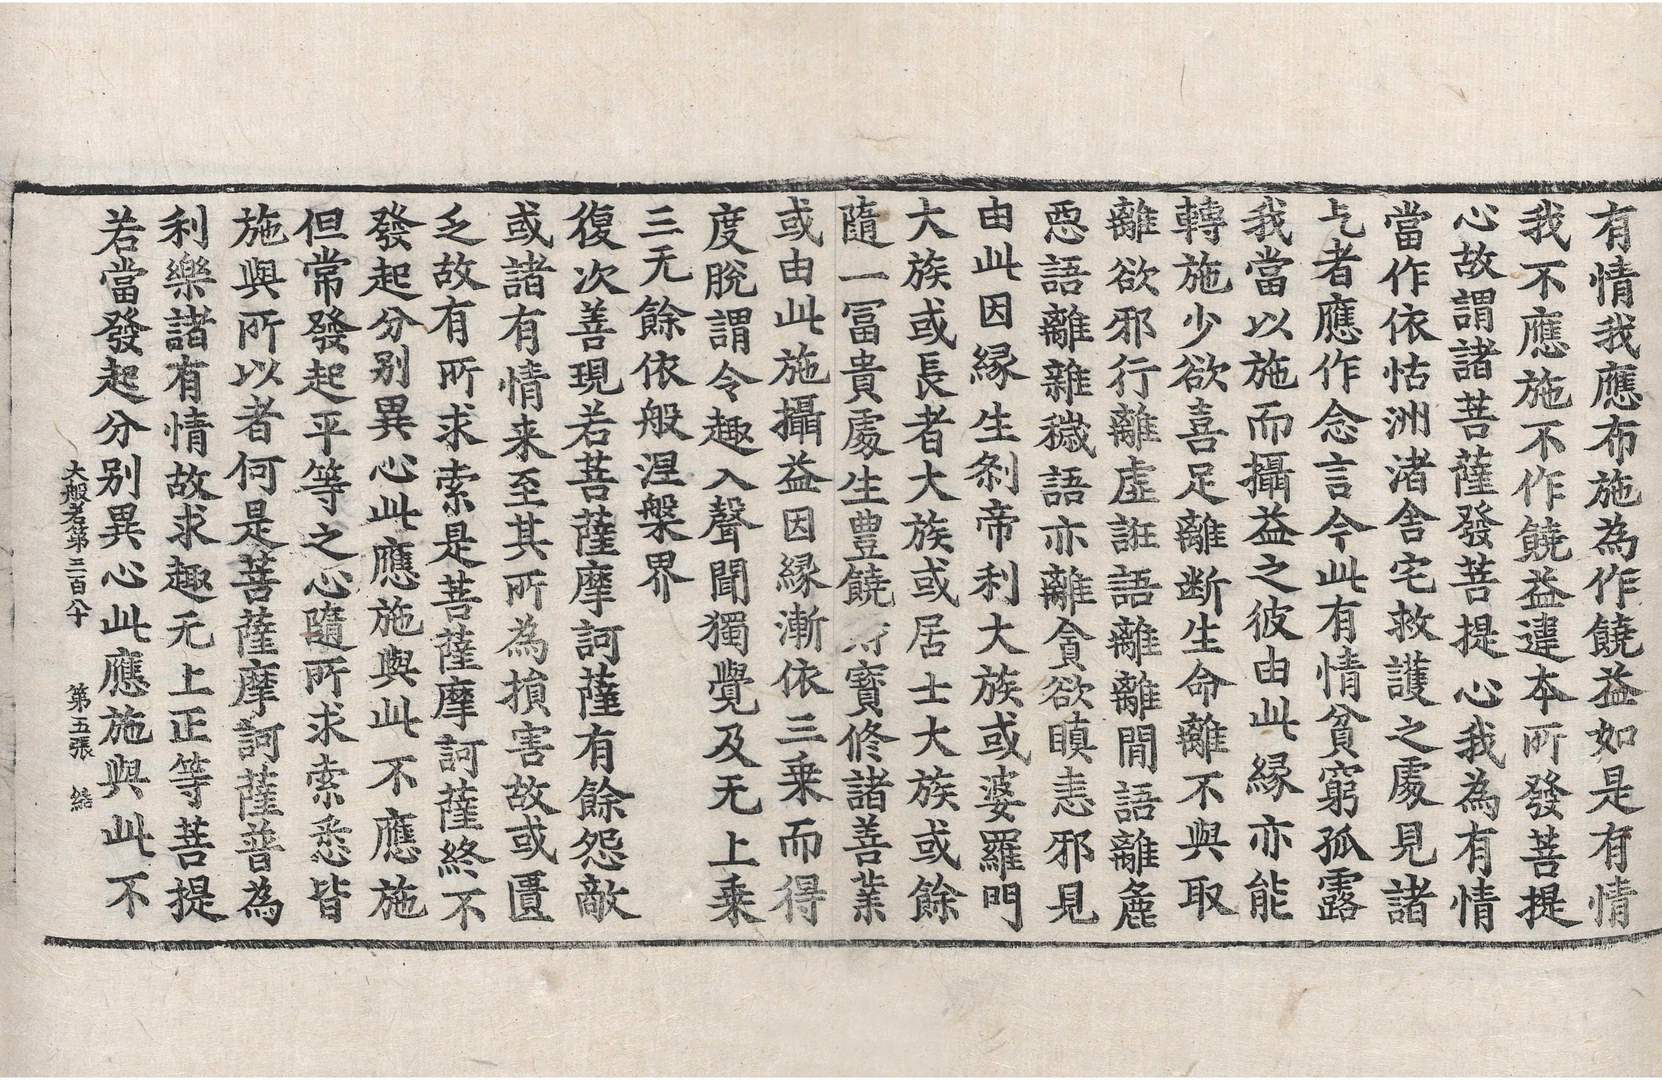 有情我應布施為作饒益如是有情
我不應施不作饒益違本所發菩提
心故謂諸菩薩發菩提心我為有情
當作依怙洲渚舍宅救護之處見諸
乞者應作念言今此有情貧窮孤露
我當以施而攝益之彼由此緣亦能
轉施少欲喜足離断生命離不與取
離欲邪行離虛誑語離離間語離麁
惡語離雜穢語亦離貪欲瞋恚邪見
由此因緣生刹帝利大族或婆羅門
大族或長者大族或居士大族或餘
隨一冨貴處生豊饒財寶修諸善業
或由此施攝益因緣漸依三乗而得
度脫謂令趣入聲聞獨覺及无上乗
三无餘依般涅槃界
復次善現若菩薩摩訶薩有餘怨敵
或諸有情来至其所為損害故或匱
乏故有所求索是菩薩摩訶薩終不
發起分别異心此應施與此不應施
但常發起平等之心隨所求索悉皆
施與所以者何是菩薩摩訶薩普為
利樂諸有情故求趣无上正等菩提
若當發起分别異心此應施與此不
大般若第三百八十 第五張